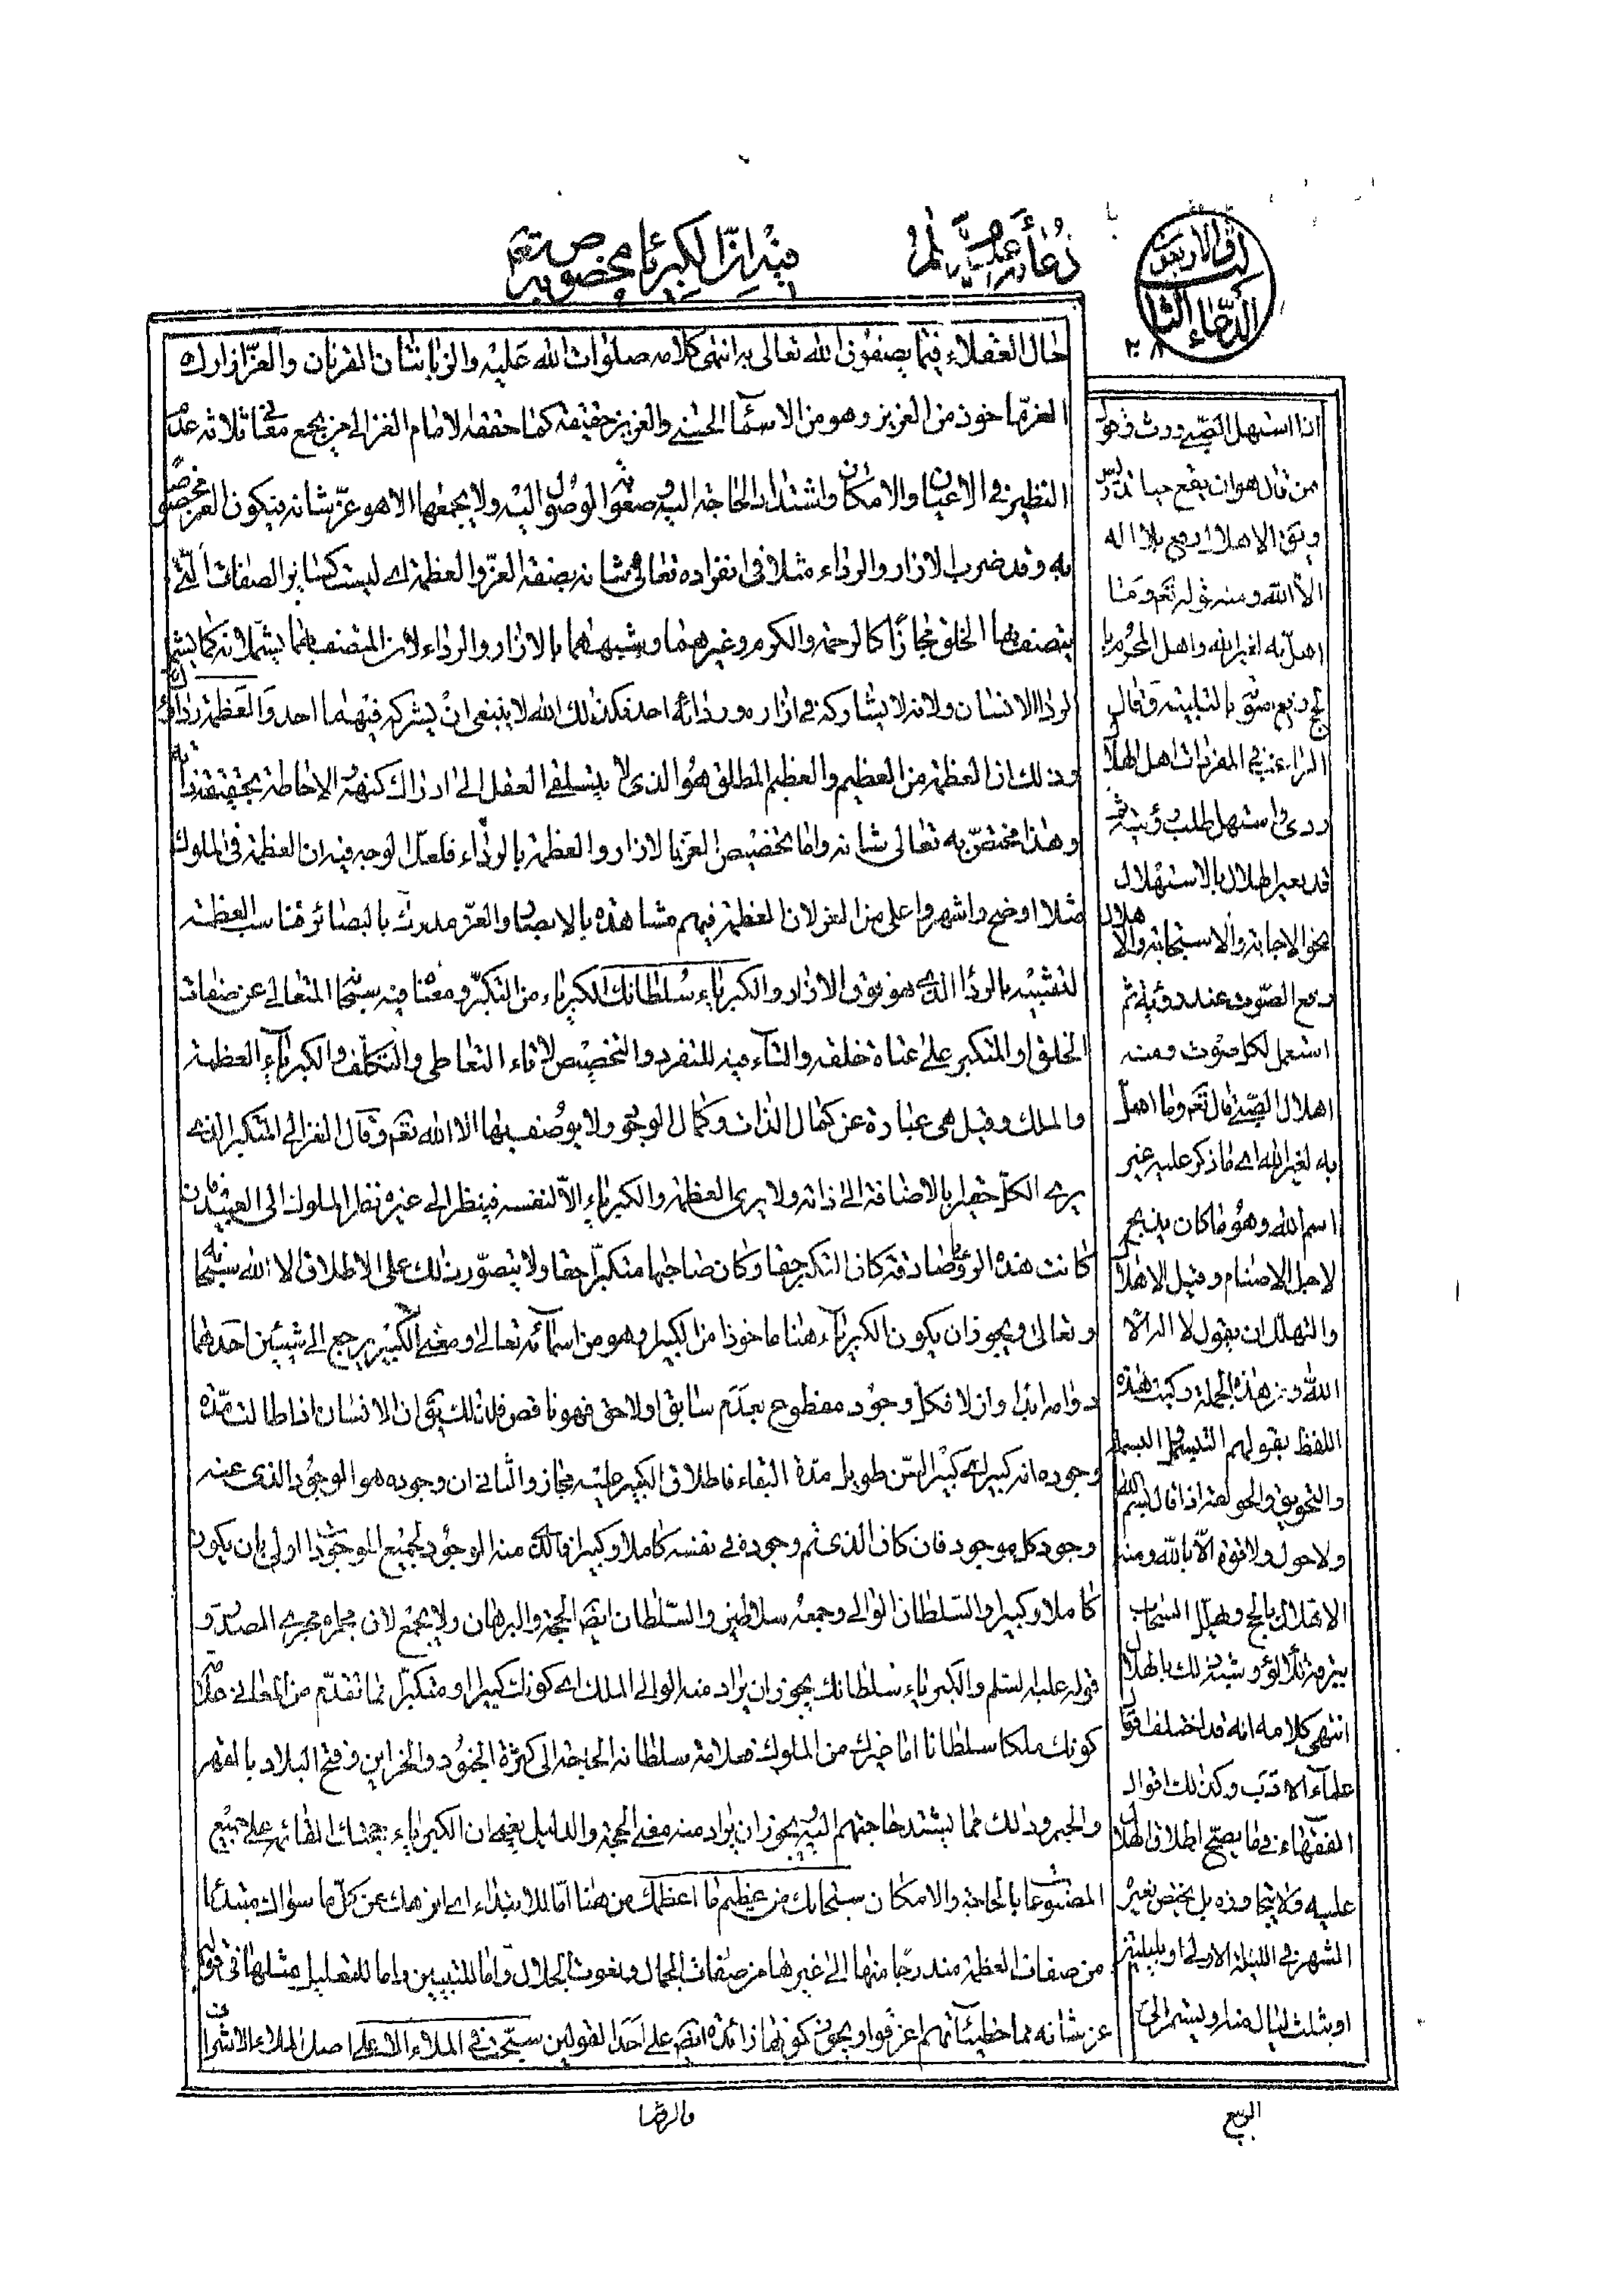 فيه ان الكبرياء مخصوص به تعم
الدعاء الثا
حال العقلاء فيما يصفون الله تعالى به انتهى كلامه صلوات الله عليه والزبانيتان القرنان والعز ازارك
العز ماخوذ من العزيز وهو من الاسماء الحسنى والعزيز حقيقة كما حققه الامام الغزالي من يجمع معنى ثلاثة عدم
النظير في الاعيان والامكان واشتداد الحاجة اليه وصعوبة الوصول اليه ولا يجمعها الا هو عز شانه فيكون العز مخصوصا
به وقد ضرب الازار والرداء مثلا في انفراده تعالى شانه بصفة العز والعظمة اي ليست كساير الصفات التي
يتصف بها الخلق مجازا كالرحمة والكرم وغيرهما وشبههما بالازار والرداء لان المتصف بهما يشملانه كما يشمل
الرداء الانسان ولانه لا يشاركه في ازاره وردائه احد فكذلك الله لا ينبغي ان يشركه فيهما احد والعظمة رداؤك
وذلك ان العظمة من العظيم والعظيم المطلق هو الذي لا يتسلق العقل الى ادراك كنهه والاحاطة بحقيقة ذاته
وهذا مختص به تعالى شانه واما تخصيص العز بالازار والعظمة بالرداء فلعل الوجه فيه ان العظمة في الملوك
مثلا اوضح واشهر واعلى من العز لان العظمة فيهم مشاهدة بالابصار والعز مدرك بالبصائر فناسب العظمة
التشبيه بالرداء الذي هو فوق الازار والكبرياء سلطانك الكبرياء من التكبر ومعناه فيه سبحانه المتعالى عن صفات
الخلق او المتكبر على عتاة خلقه والتاء فيه للتفرد والتخصيص لا تاء التعاطي والتكلف والكبرياء العظمة
والملك وقيل هي عبارة عن كمال الذات وكمال الوجود ولا يوصف بها الا الله تعم وقال الغزالي المتكبر الذي
يرى الكل حقيرا بالاضافة الى ذاته ولا يرى العظمة والكبرياء الا لنفسه فينظر الى غيره نظر الملوك الى العبيد فان
كانت هذه الرؤية صادقة كان التكبر حقا وكان صاحبها متكبرا حقا ولا يتصور ذلك على الاطلاق الا الله سبحانه
وتعالى ويجوز ان يكون الكبرياء هنا ماخوذا من الكبير وهو من اسمائه تعالى ومعنى الكبير يرجع الى شيئين احدهما
دوامه ابدا وازلا فكل وجود مقطوع بعدم سابق او لاحق فهو ناقص فلذلك يق ان الانسان اذا طالت مدة
وجوده انه كبير اي كبير السن طويل مدة البقاء فاطلاق الكبير عليه مجاز والثاني ان وجوده هو الوجود الذي عنه
وجود كل موجود فان كان الذي تم وجوده في نفسه كاملا وكبيرا فالذي منه الوجود لجميع الموجودات اولى بان يكون
كاملا وكبيرا والسلطان الوالي وجمعه سلاطين والسلطان ايضا الحجة والبرهان ولا يجمع لان مجراه مجرى المصدر و
قوله عليه السلم والكبرياء سلطانك يجوز ان يراد منه الوالي الملك اي كونك كبيرا ومتكبرا بما تقدم من المعاني
كونك ملكا سلطانا اما غيرك من الملوك فعلامة سلطانه الحاجة الى كثرة الجنود والخزاين وفتح البلاد بالقهر
والجبر وذلك مما يشتد حاجتهم اليه ويجوز ان يراد منه معنى الحجة والدليل يعني ان الكبرياء حجتك القائمة على جميع
المصنوعات بالحاجة والامكان سبحانك من عظيم ما اعظمك من هنا اما للابتداء اي انزهك عن كل ما سواك مبتدئا
من صفات العظمة مندرجا منها الى غيرها من صفات الجمال ونعوت الجلال واما للتبيين واما للتعليل مثلها في قوله
عز شانه مما خطيئاتهم اغرقوا ويجوز كونها زائدة ايضا على احد القولين سبحت في الملاء الاعلى اصل الملاء الاشراف
والرضا
اذا استهل الصبي ورث فهو
من قال هو ان يقع حيا
ويق الاهلال رفع بلا اله
الا الله ومنه قوله تعم وما
اهل به لغير الله واهل المحرم با
لحج رفع صوته بالتلبية وقال
الراغب في المفردات اهل الهلال
رؤي واستهل طلب رؤيته ثم
قد يعبر الاهلال بالاستهلال
نحو الاجابة والاستجابة والاهلال
رفع الصوت عند رؤيته ثم
استعمل لكل صوت ومنه
اهلال الصبي قال تعم وما اهل
به لغير الله اي ما ذكر عليه غير
اسم الله وهو ما كان يذبح
لاجل الاصنام وقيل الاهلال
والتهلل ان يقول لا اله الا
الله ومن هذه الجملة ركبت هذه
اللفظة بقولهم التبسمل والبسملة
والتحولق والحولقة اذا قال بسم الله
ولا حول ولا قوة الا بالله ومنه
الاهلال بالحج وتهلل السحاب
ببرقه تلألؤ ويشبه ذلك بالهلال
انتهى كلامه انه قد اختلف اقوال
علماء الادب وكذلك اقوال
الفقهاء في ما يصح اطلاق الهلال
عليه ولا يتجاوزه بل يختص بغيره
الشهر في الليلة الاولى او بليلتين
او بثلث ليال فصار ويستمر الى
السبع